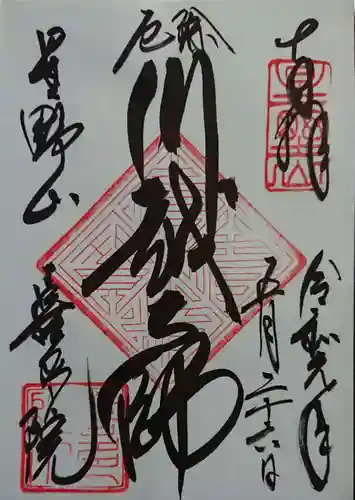 奉拝
令和元年
五月二十六日
厄除
川越大師
星野山
喜多院